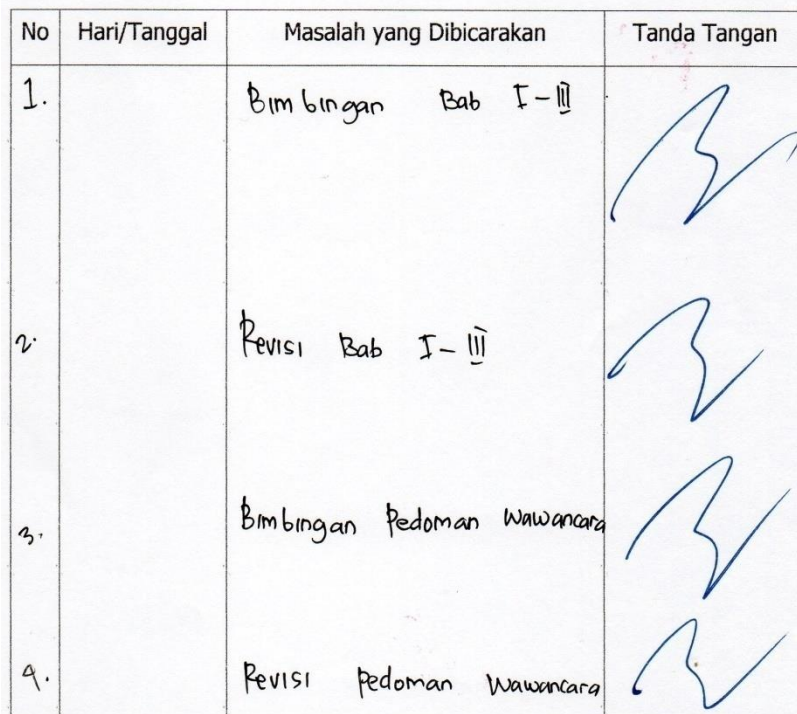 No Hari/Tanggal Masalah yang Dibicarakan Tanda Tangan
1. Bimbingan Bab I-III
2. Revisi Bab I-III
3. Bimbingan Pedoman Wawancara
4. Revisi Pedoman Wawancara